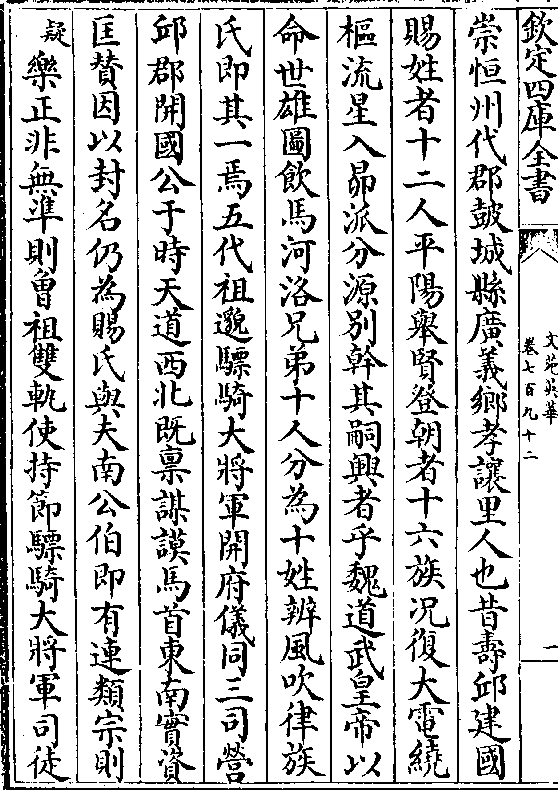 欽定四庫全書
文苑英華
卷七百九十二
一
崇恒州代郡皷城縣廣義鄉孝讓里人也昔壽邱建國
賜姓者十二人平陽舉賢登朝者十六族况復大電繞
樞流星入昴派分源别幹其嗣興者乎魏道武皇帝以
命世雄圖飲馬河洛兄弟十人分為十姓辨風吹律族
氏即其一焉五代祖邈驃騎大將軍開府儀同三司營
邱郡開國公于時天道西北既禀謀謨馬首東南實資
匡贊因以封名仍為賜氏與夫南公伯即有連類宗則
疑樂正非無準則曾祖雙軌使持節驃騎大將軍司徒